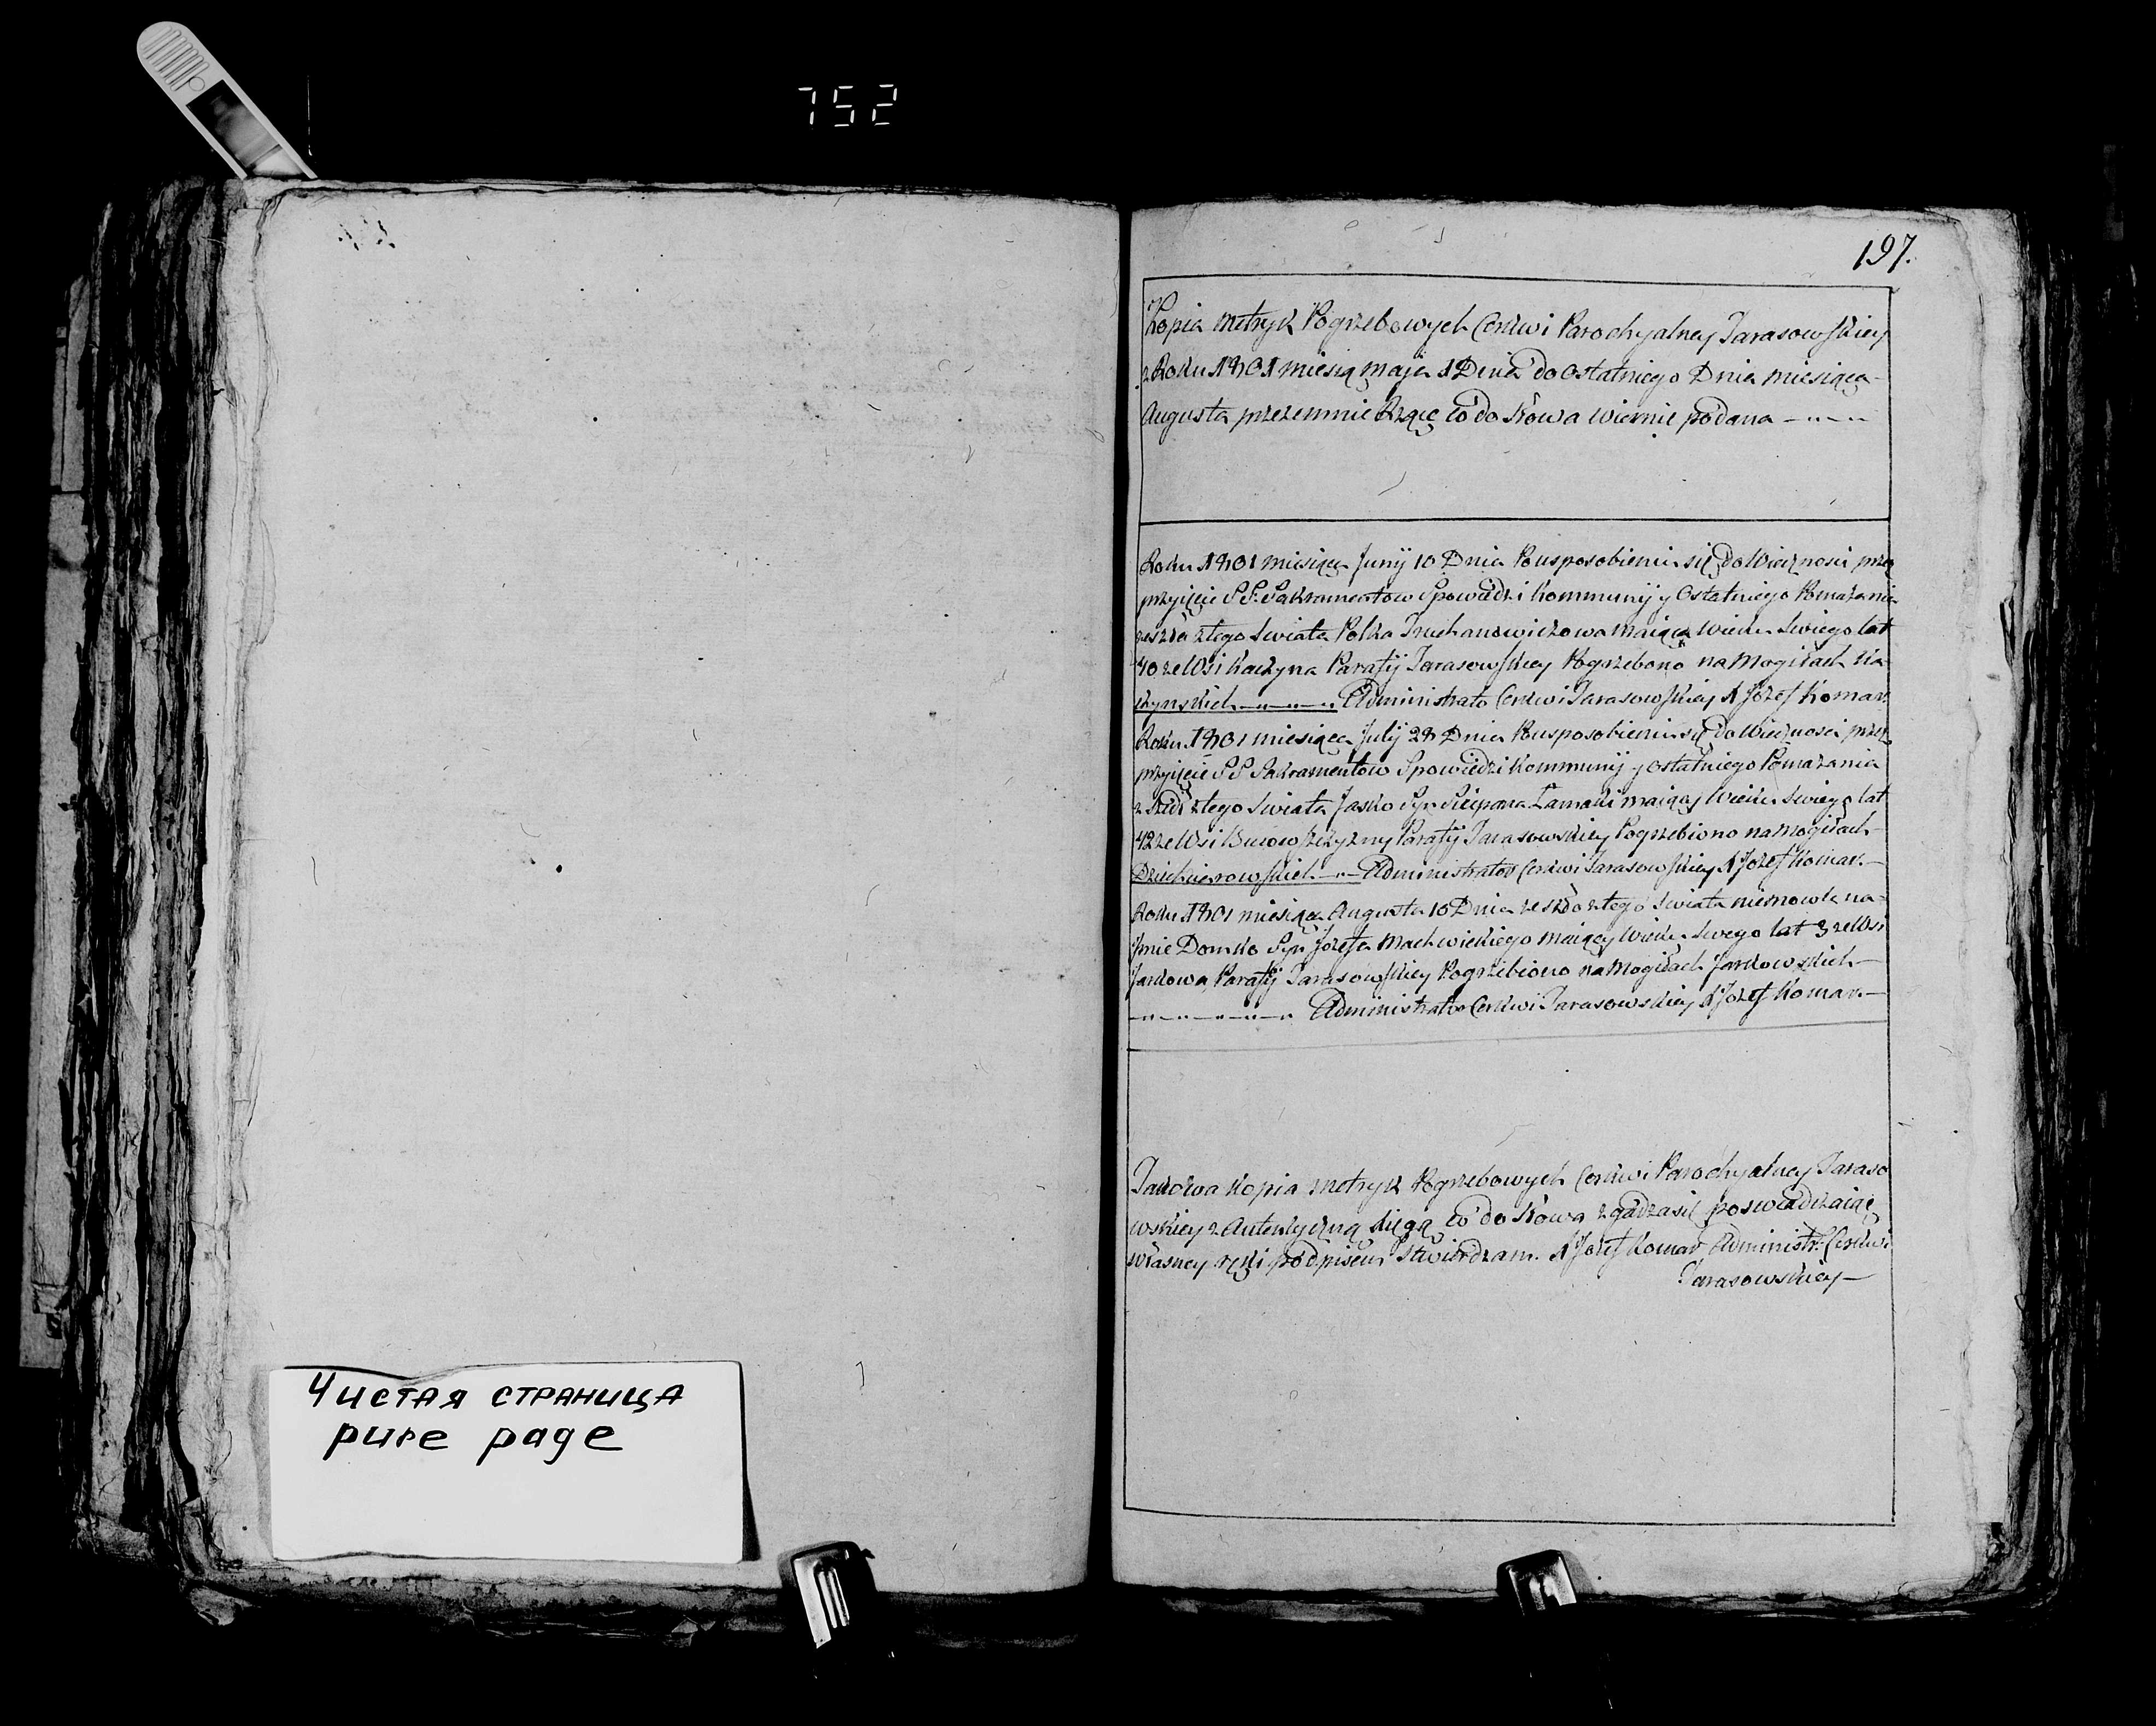 752
197.
Kopia Metryk Pogrzebowych Cerkwi Parochyalney Tarasowskiey
z Roku 1801 miesią maja 1 Dnia do Ostatniego Dnia miesiąca
Augusta przezemnie co do słowa wiernie podana
Roku 1801 miesiąca Junij 10 Dnia Pousposobieniu się do Wiecznosci przez
przyjęcie S S. Sakramentow Spowiedzi Kommunij y Ostatniego Pomazania
zeszła ztego Swiata Polka Truchanowiczowa maiąca Wieku Swiego lat
40 ze Wsi Kaczyna Parafij Tarasowskiey Pogrzebono na Mogiłach Ka-
czynskich Administrato Cerkwi Tarasowskiey X Jozef Komar.
Roku 1801 miesiąca Julij 28 Dnia Pousposobieniu się do Wiecznosci przez
przyjęcie S S Sakramentow Spowiedzi Kommunij y Ostatniego Pomazania
ztego Swiata Jasko Syn Sciepana maiący Wieku Swiego lat
42 ze Wsi Parafij Tarasowskiey Pogrzebiono na Mogiłach
Administrator Cerkwi Tarasowskiey X Jozef Komar.
Roku 1801 miesiąca Augusta 10 Dnia zeszło ztego Swiata niemowle na
Jmie Domko Syn Jozefa maiący Wieku Swego lat 3 ze Wsi
Jarkowa Parafij Tarasowskiey Pogrzebiono na Mogiłach Jarkowskich
Administrator Cerkwi Tarasowskiey X Jozef Komar.
Takowa Kopia Metryk Pogrzebowych Cerkwi Parochyalney Taraso
wskiey z Autentyczną Xięgą co do słowa zgadza się poswiadczaiąc
własney ręki podpisem Stwierdzam. X Jozef Komar Administr: Cerkwi
Tarasowskiey
Чистая страница
pure page